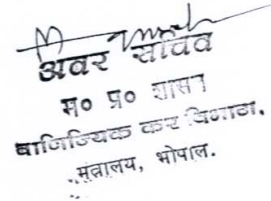 अवर सचिव
म० प्र० शासन
वाणिज्यिक कर विभाग,
मंत्रालय, भोपाल.